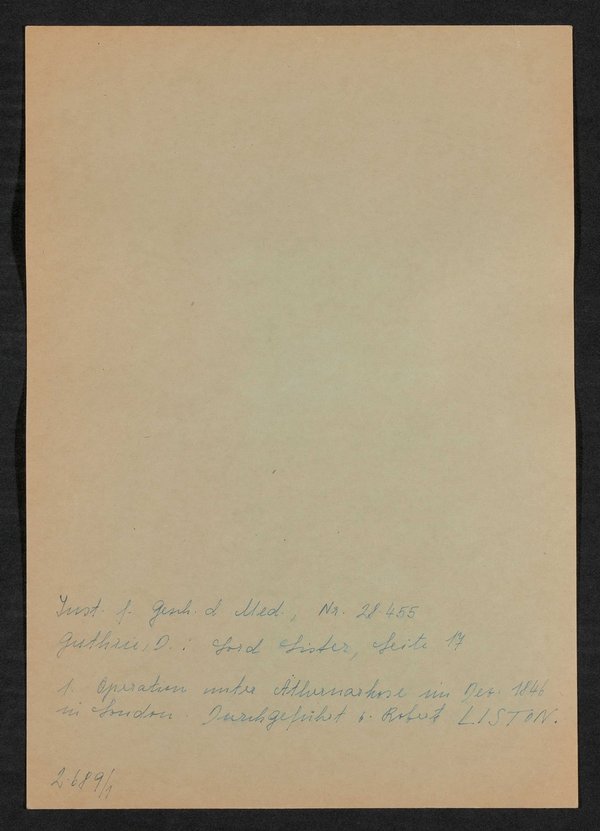 Inst. f. Gesch. d Med., Nr. 28.455
Guthrie, D.: Lord Lister, Seite 17
1. Operation unter Äthernarkose im Dez. 1846
in London. Durchgeführt v. Robert LISTON.
2.689/1